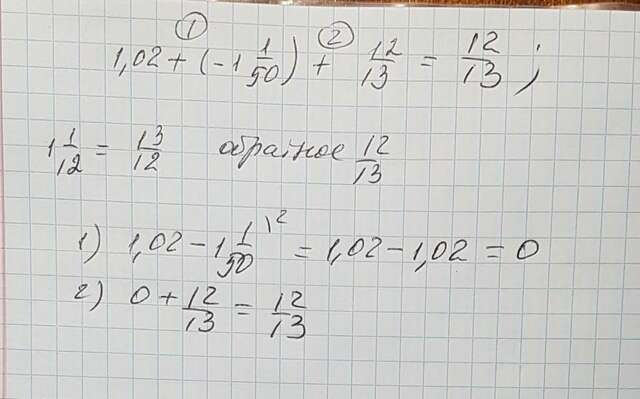 ① ②
1,02 + (-1 1/50) + 12/13 = 12/13 ;
1 1/12 = 13/12 обратное 12/13
1) 1,02 - 1 1/50 \2 = 1,02 - 1,02 = 0
2) 0 + 12/13 = 12/13